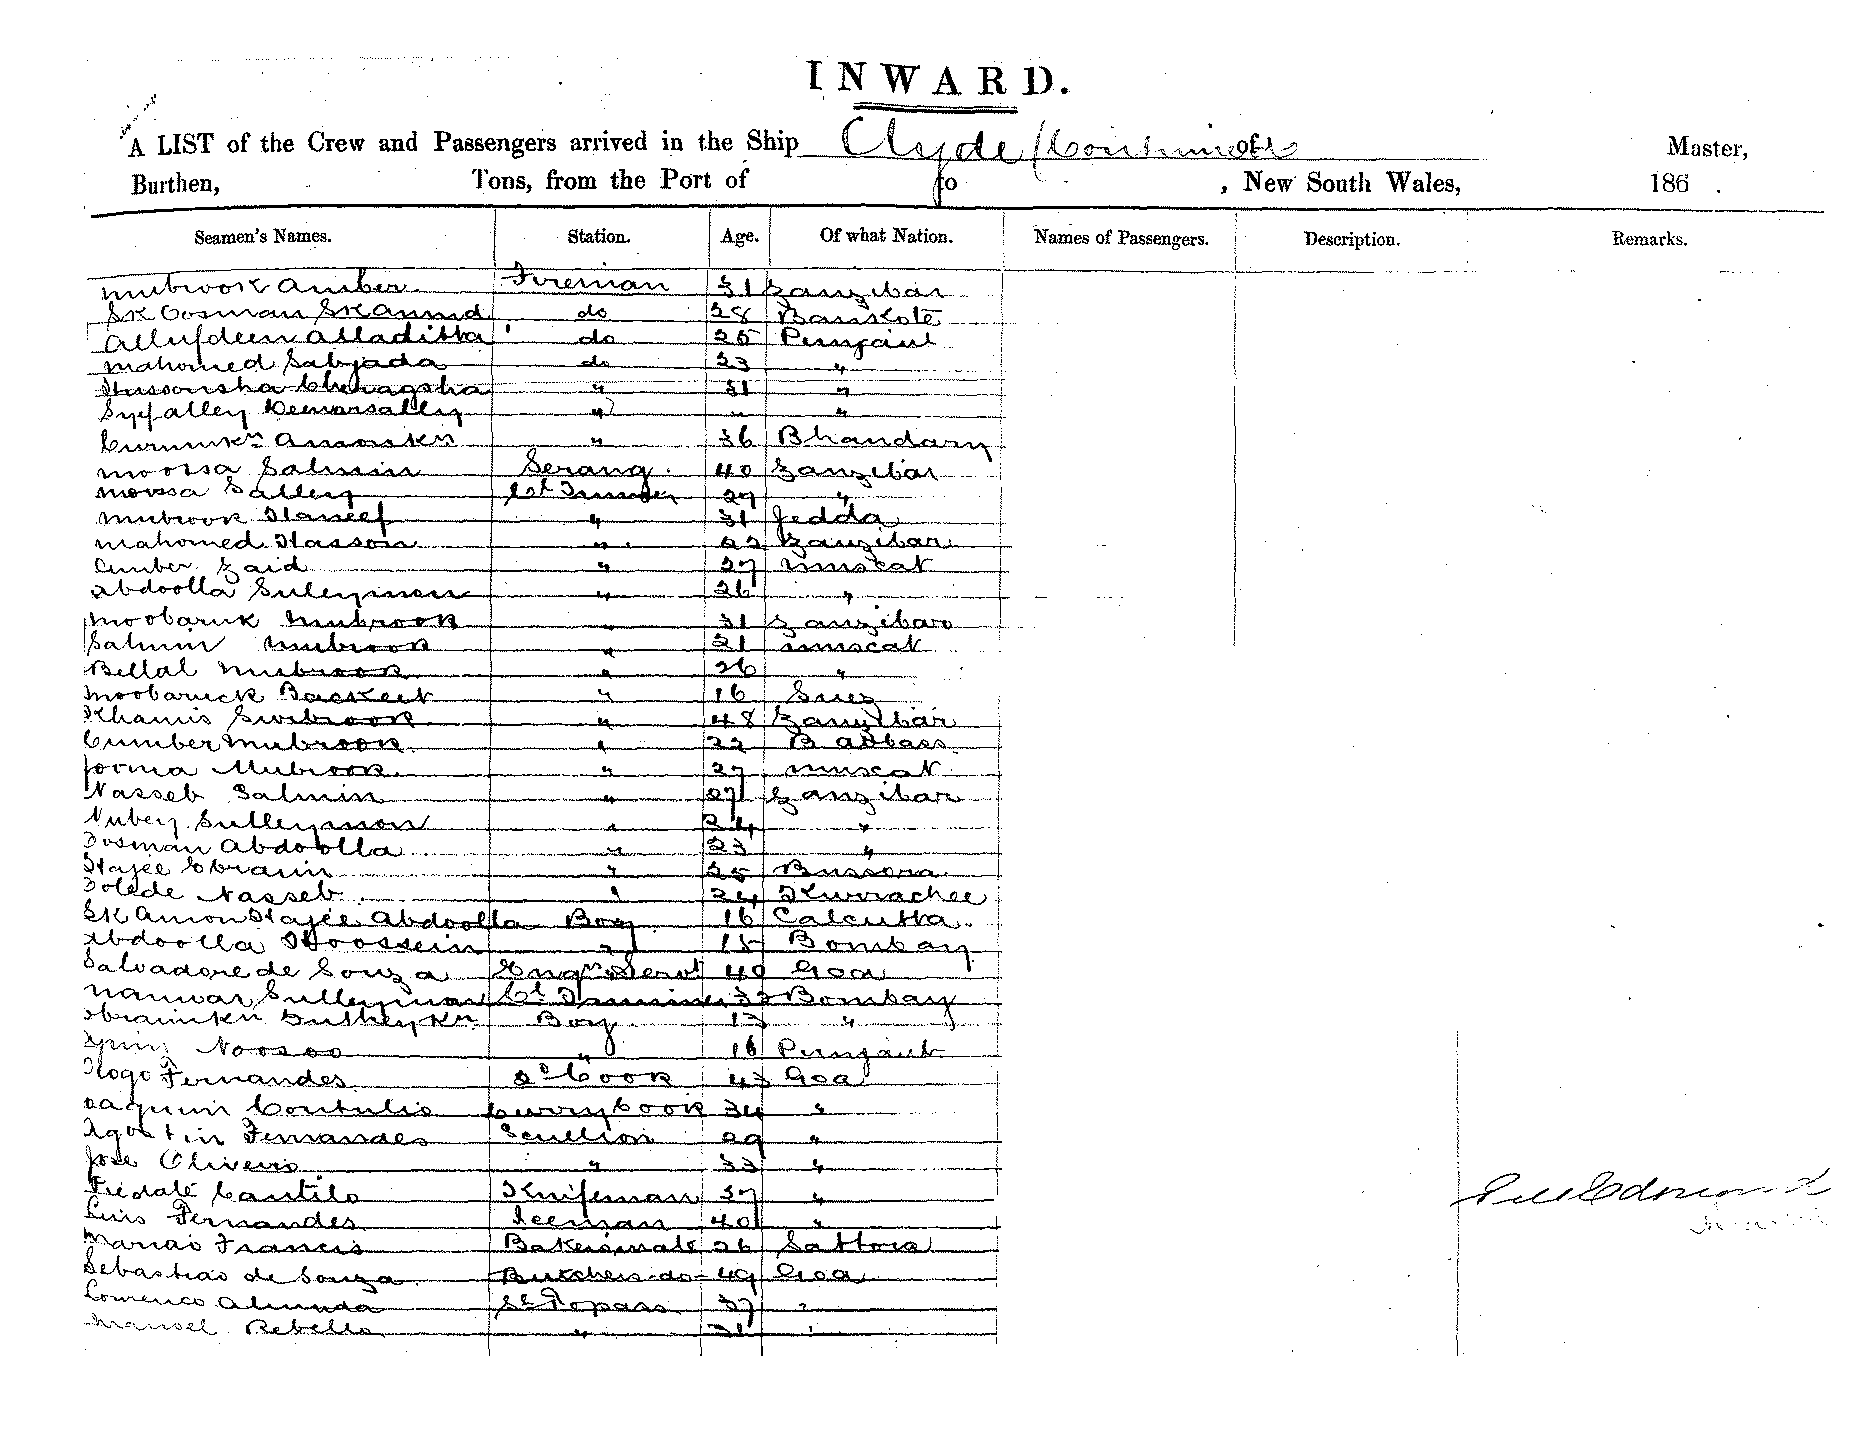 INWARD.
A LIST of the Crew and Passengers arrived in the Ship Clyde (Continued) of Master,
Burthen, Tons, from the Port of to , New South Wales, 186 .
Seamen's Names. Station. Age. Of what Nation. Names of Passengers. Description. Remarks.
Mubrook Amber Fireman 31 Zanzibar
Sk Oosman Sk Ahmd do 28 Bankote
Allufdeen Alladitta do 25 Punjaub
Mahomed Sabjada do 23 "
Hussonsha Cheragsha " 31 "
Syfalley " " "
" 36 Bhandary
Moossa Salmin Serang 40 Zanzibar
Moossa Salley 1st Trimmer 27 "
Mubrook Haneef " 31 Jedda
Mahomed Hasson " 22 Zanzibar
Amber Zaid " 27 Muscat
Abdoolla Suleymon " 26 "
Moobaruk Mubrook " 31 Zanzibar
Salmin Mubrook " 21 Muscat
Bellal Mubrook " 26 "
Moobaruck Backeet " 16 Suez
Khamis " 48 Zanzibar
Cumber Mubrook " 22 B Abbass
Jooma Mubrook " 27 Muscat
Nasseb Salmin " 27 Zanzibar
Nubey Sulleymon " 24 "
Oosman Abdoolla " 23 "
Hajee Ebraim " 25 Bussora
Nasseb " 24 Kurrachee
Sk Amon Hajee Abdoolla Boy 16 Calcutta
Abdoolla Hoossein " 15 Bombay
Salvadore de Souza Engrs Servt 40 Goa
Sulleyman Cl Trimmer 32 Bombay
Boy 13 "
Noosoo " 16 Punjaub
Fernandes 2d Cook 43 Goa
oaquim Coutulio Currycook 34 "
Agostin Fernandes Scullion 29 "
Jose Oliveiro " 33 "
Cantilo Knifeman 37 "
Luis Fernandes Iceman 40 "
Mariao Francis Bakersmate 26 Sattara
Sebastiao de Souza Butchers do 49 Goa
Lourenco Almeida 37 "
Manoel Rebello " 31 "